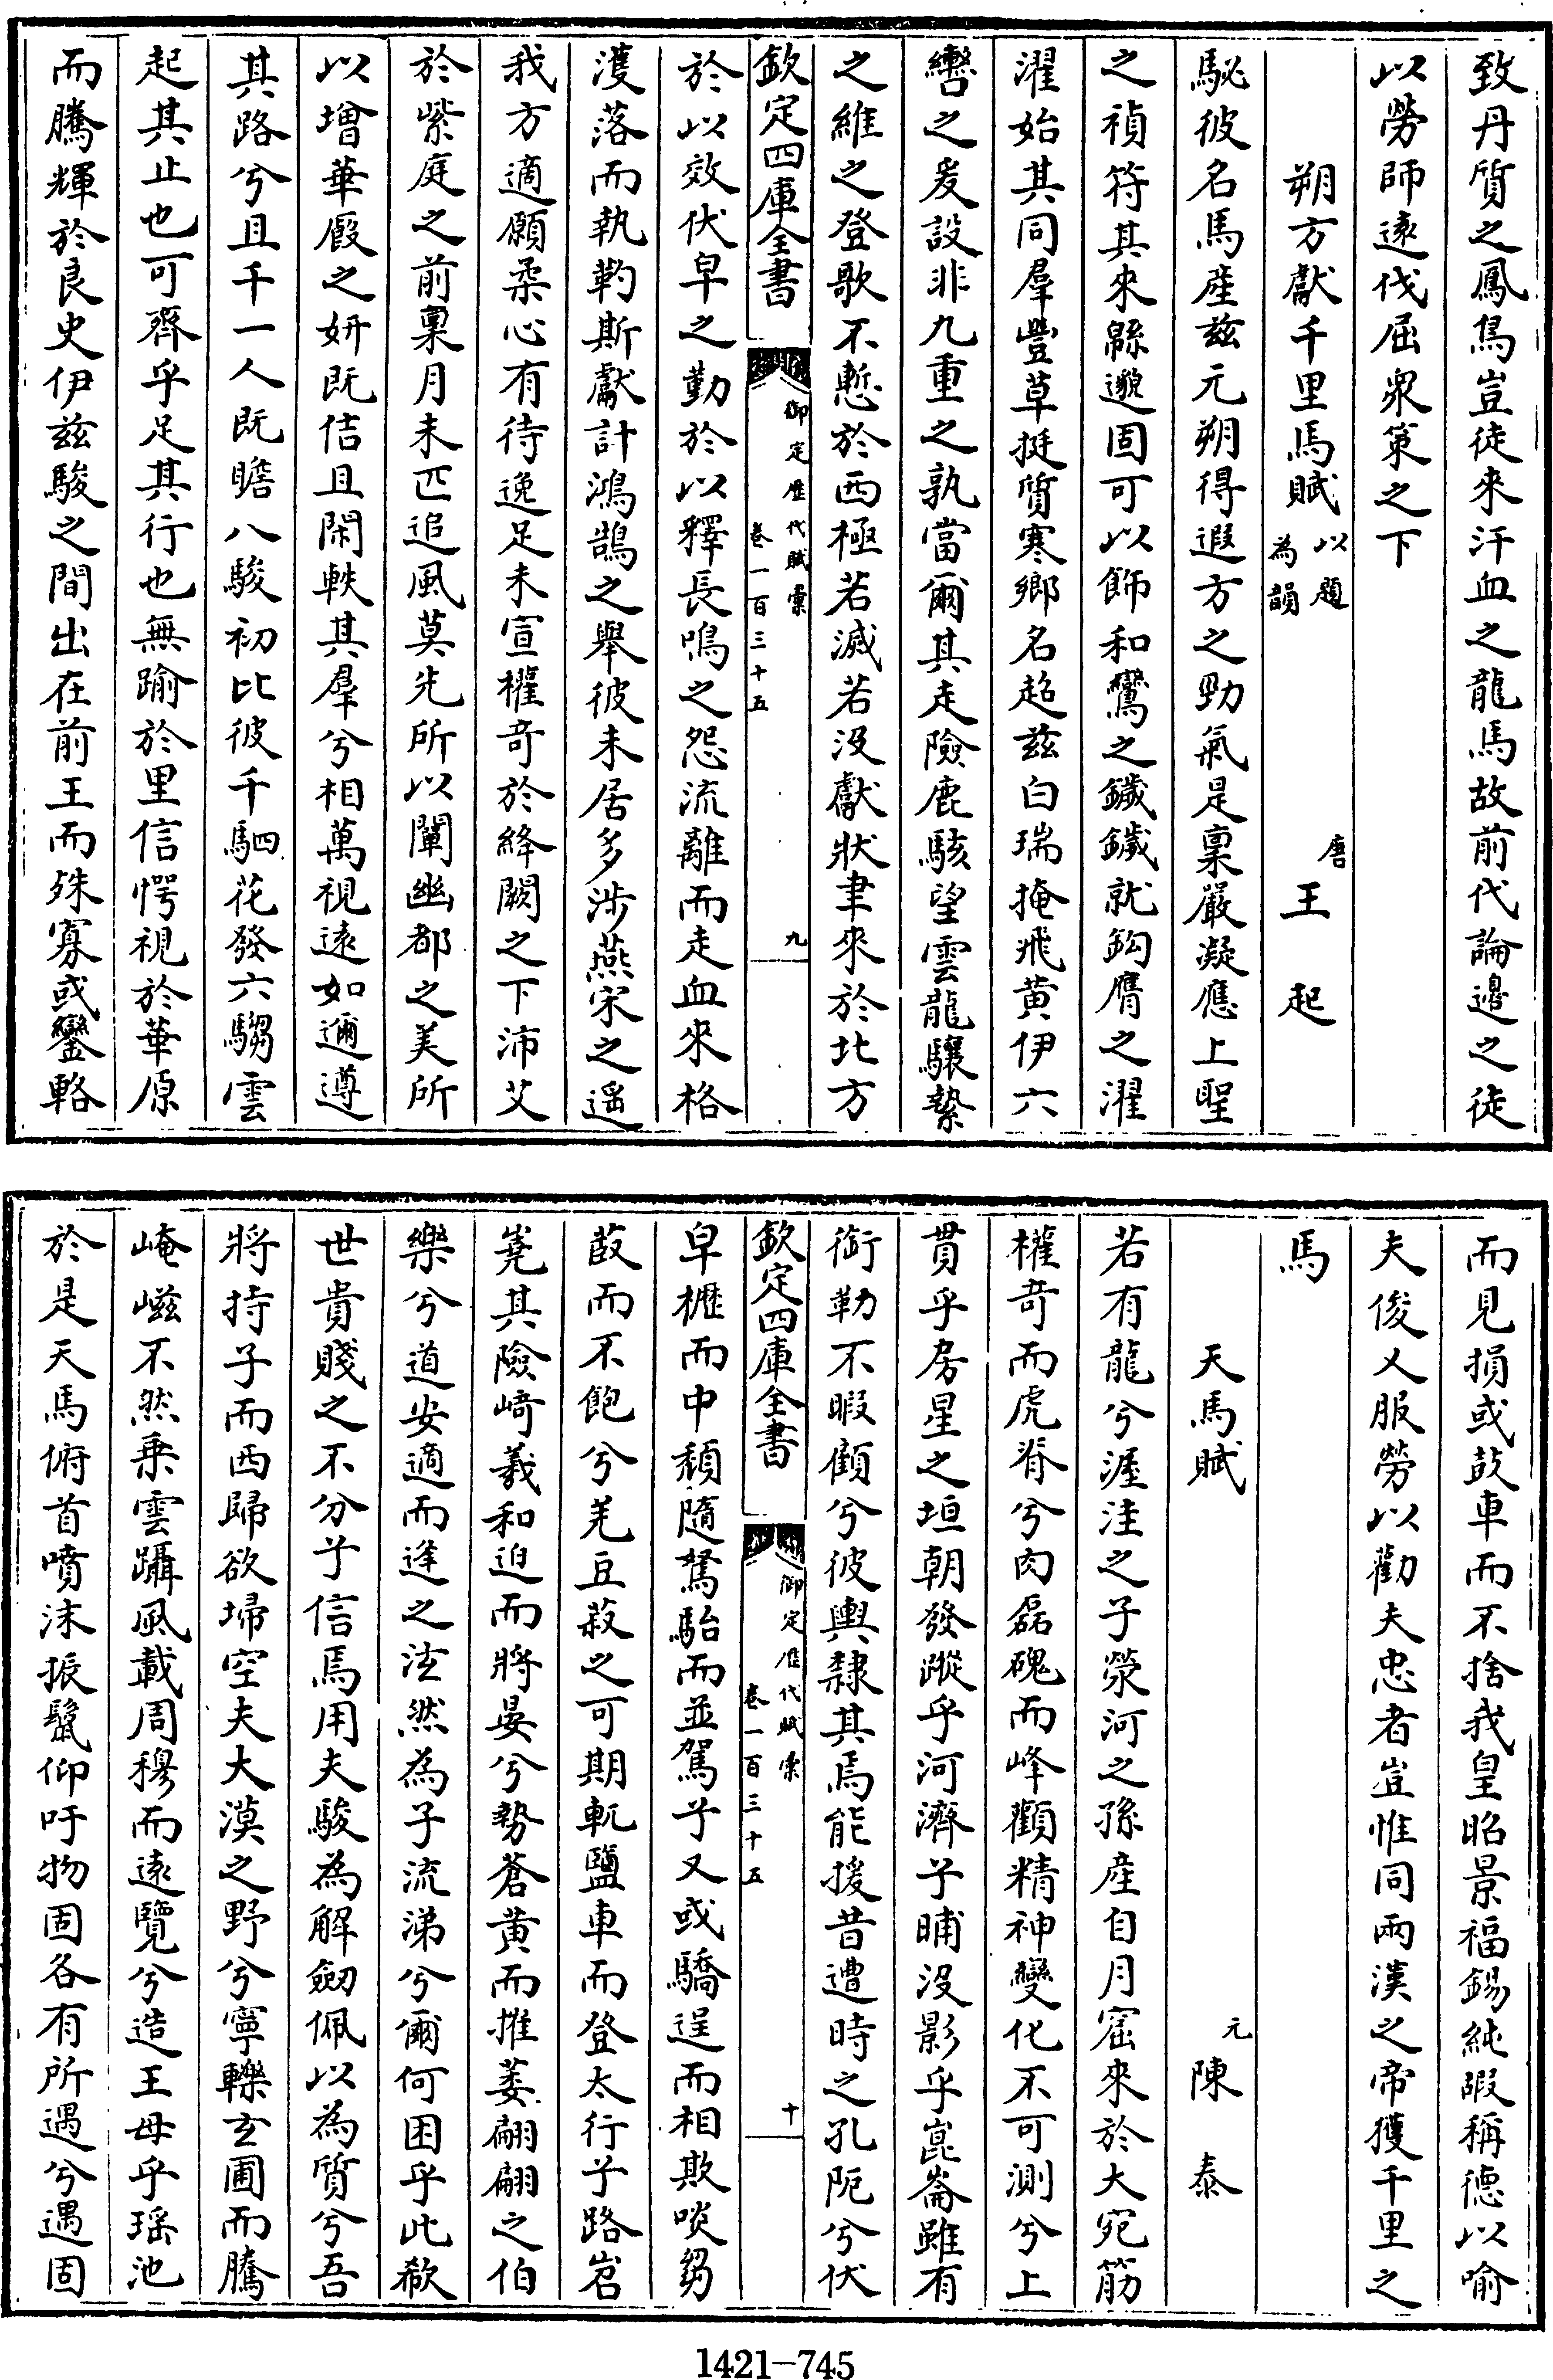 致丹質之鳳鳥豈徒來汗血之龍馬故前代論邊之徒
以勞師遠伐屈衆策之下
朔方獻千里馬賦以題為韻
唐王起
駜彼名馬産兹元朔得遐方之勁氣是稟嚴凝應上聖
之禎符其來緜邈固可以飾和鸞之鏚鏚就鈎膺之濯
濯始其同羣豐草挺質寒鄉名超兹白瑞掩飛黄伊六
轡之爰設非九重之孰當爾其走險鹿駭望雲龍驤縶
之維之登歌不慙於西極若滅若没獻狀聿來於北方
欽定四庫全書
御定歷代賦彙
卷一百三十五
九
於以效伏皁之勤於以釋長鳴之怨流離而走血來格
濩落而執靮斯獻計鴻鵠之舉彼未居多涉燕宋之遥
我方適願柔心有待逸足未宣櫂竒於絳闕之下沛艾
於紫庭之前稟月未匹追風莫先所以闡幽都之美所
以增華廐之妍既佶且閑軼其羣兮相萬視逺如邇遵
其路兮且千一人既瞻八駿初比彼千駟花發六騶雲
起其止也可齊乎足其行也無踰於里信愕視於華原
而騰輝於良史伊兹駿之間出在前王而殊寡或鑾輅
而見損或鼓車而不捨我皇昭景福錫純嘏稱德以喻
夫俊乂服勞以勸夫忠者豈惟同兩漢之帝獲千里之
馬
天馬賦
元陳泰
若有龍兮渥洼之子滎河之孫産自月窟來於大宛筋
權竒而虎脊兮肉磊磈而峰顴精神變化不可測兮上
貫乎房星之垣朝發蹤乎河濟兮晡没影乎崑崙雖有
銜勒不暇顧兮彼輿隸其焉能援昔遭時之孔阨兮伏
皁櫪而中頽隨駑駘而並駕兮又或驕逞而相欺啖芻
菽而不飽兮羌豆菽之可期軏鹽車而登太行兮路岧
嶤其險﨑羲和迫而將晏兮勢蒼黄而摧萎翩翩之伯
樂兮道安適而逢之泫然為子流涕兮爾何困乎此欷
世貴賤之不分兮信焉用夫駿為解劔佩以為質兮吾
將持子而西歸欲埽空夫大漠之野兮寧轢玄圃而騰
崦嵫不然乗雲躡風載周穆而逺覽兮造王母乎瑶池
於是天馬俯首噴沬振鬛仰吁物固各有所遇兮遇固
1421-745